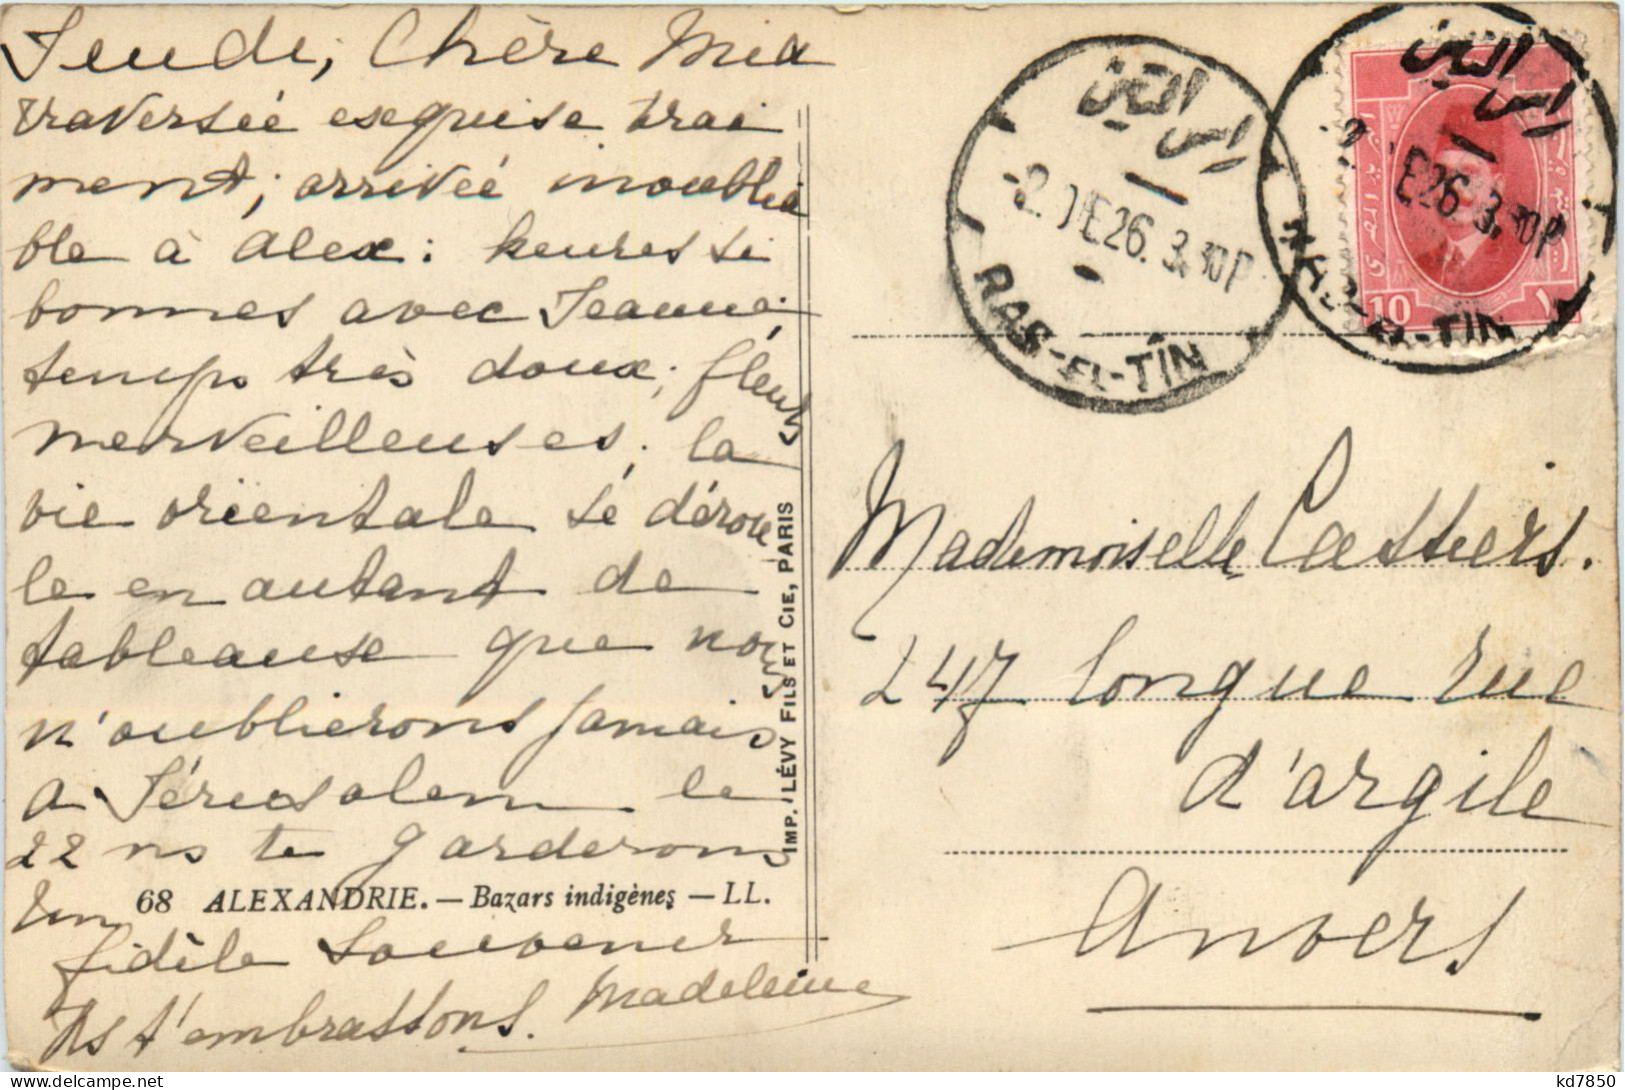 Jeudi, Chère Mia
traversée exquise vrai
ment; arrivée inoublia
ble à Alex: heures si
bonnes avec Jeanne;
temps très doux; fleurs
merveilleuses; la
vie orientale se dérou
le en autant de
tableaux que nous
n'oublierons jamais
A Jérusalem le
22 ns te garderons
un
fidèle souvenir
Ns t'embrassons. Madeleine
68 ALEXANDRIE. — Bazars indigènes — LL.
IMP. LÉVY FILS ET CIE, PARIS
راس التين
-2 DE 26. 3.30P
RAS-EL-TIN
راس التين
DE 26. 3.30P
RAS-EL-TIN
10
١٠
Mademoiselle Castiers.
247 longue rue
d'argile
Anvers
kd7850